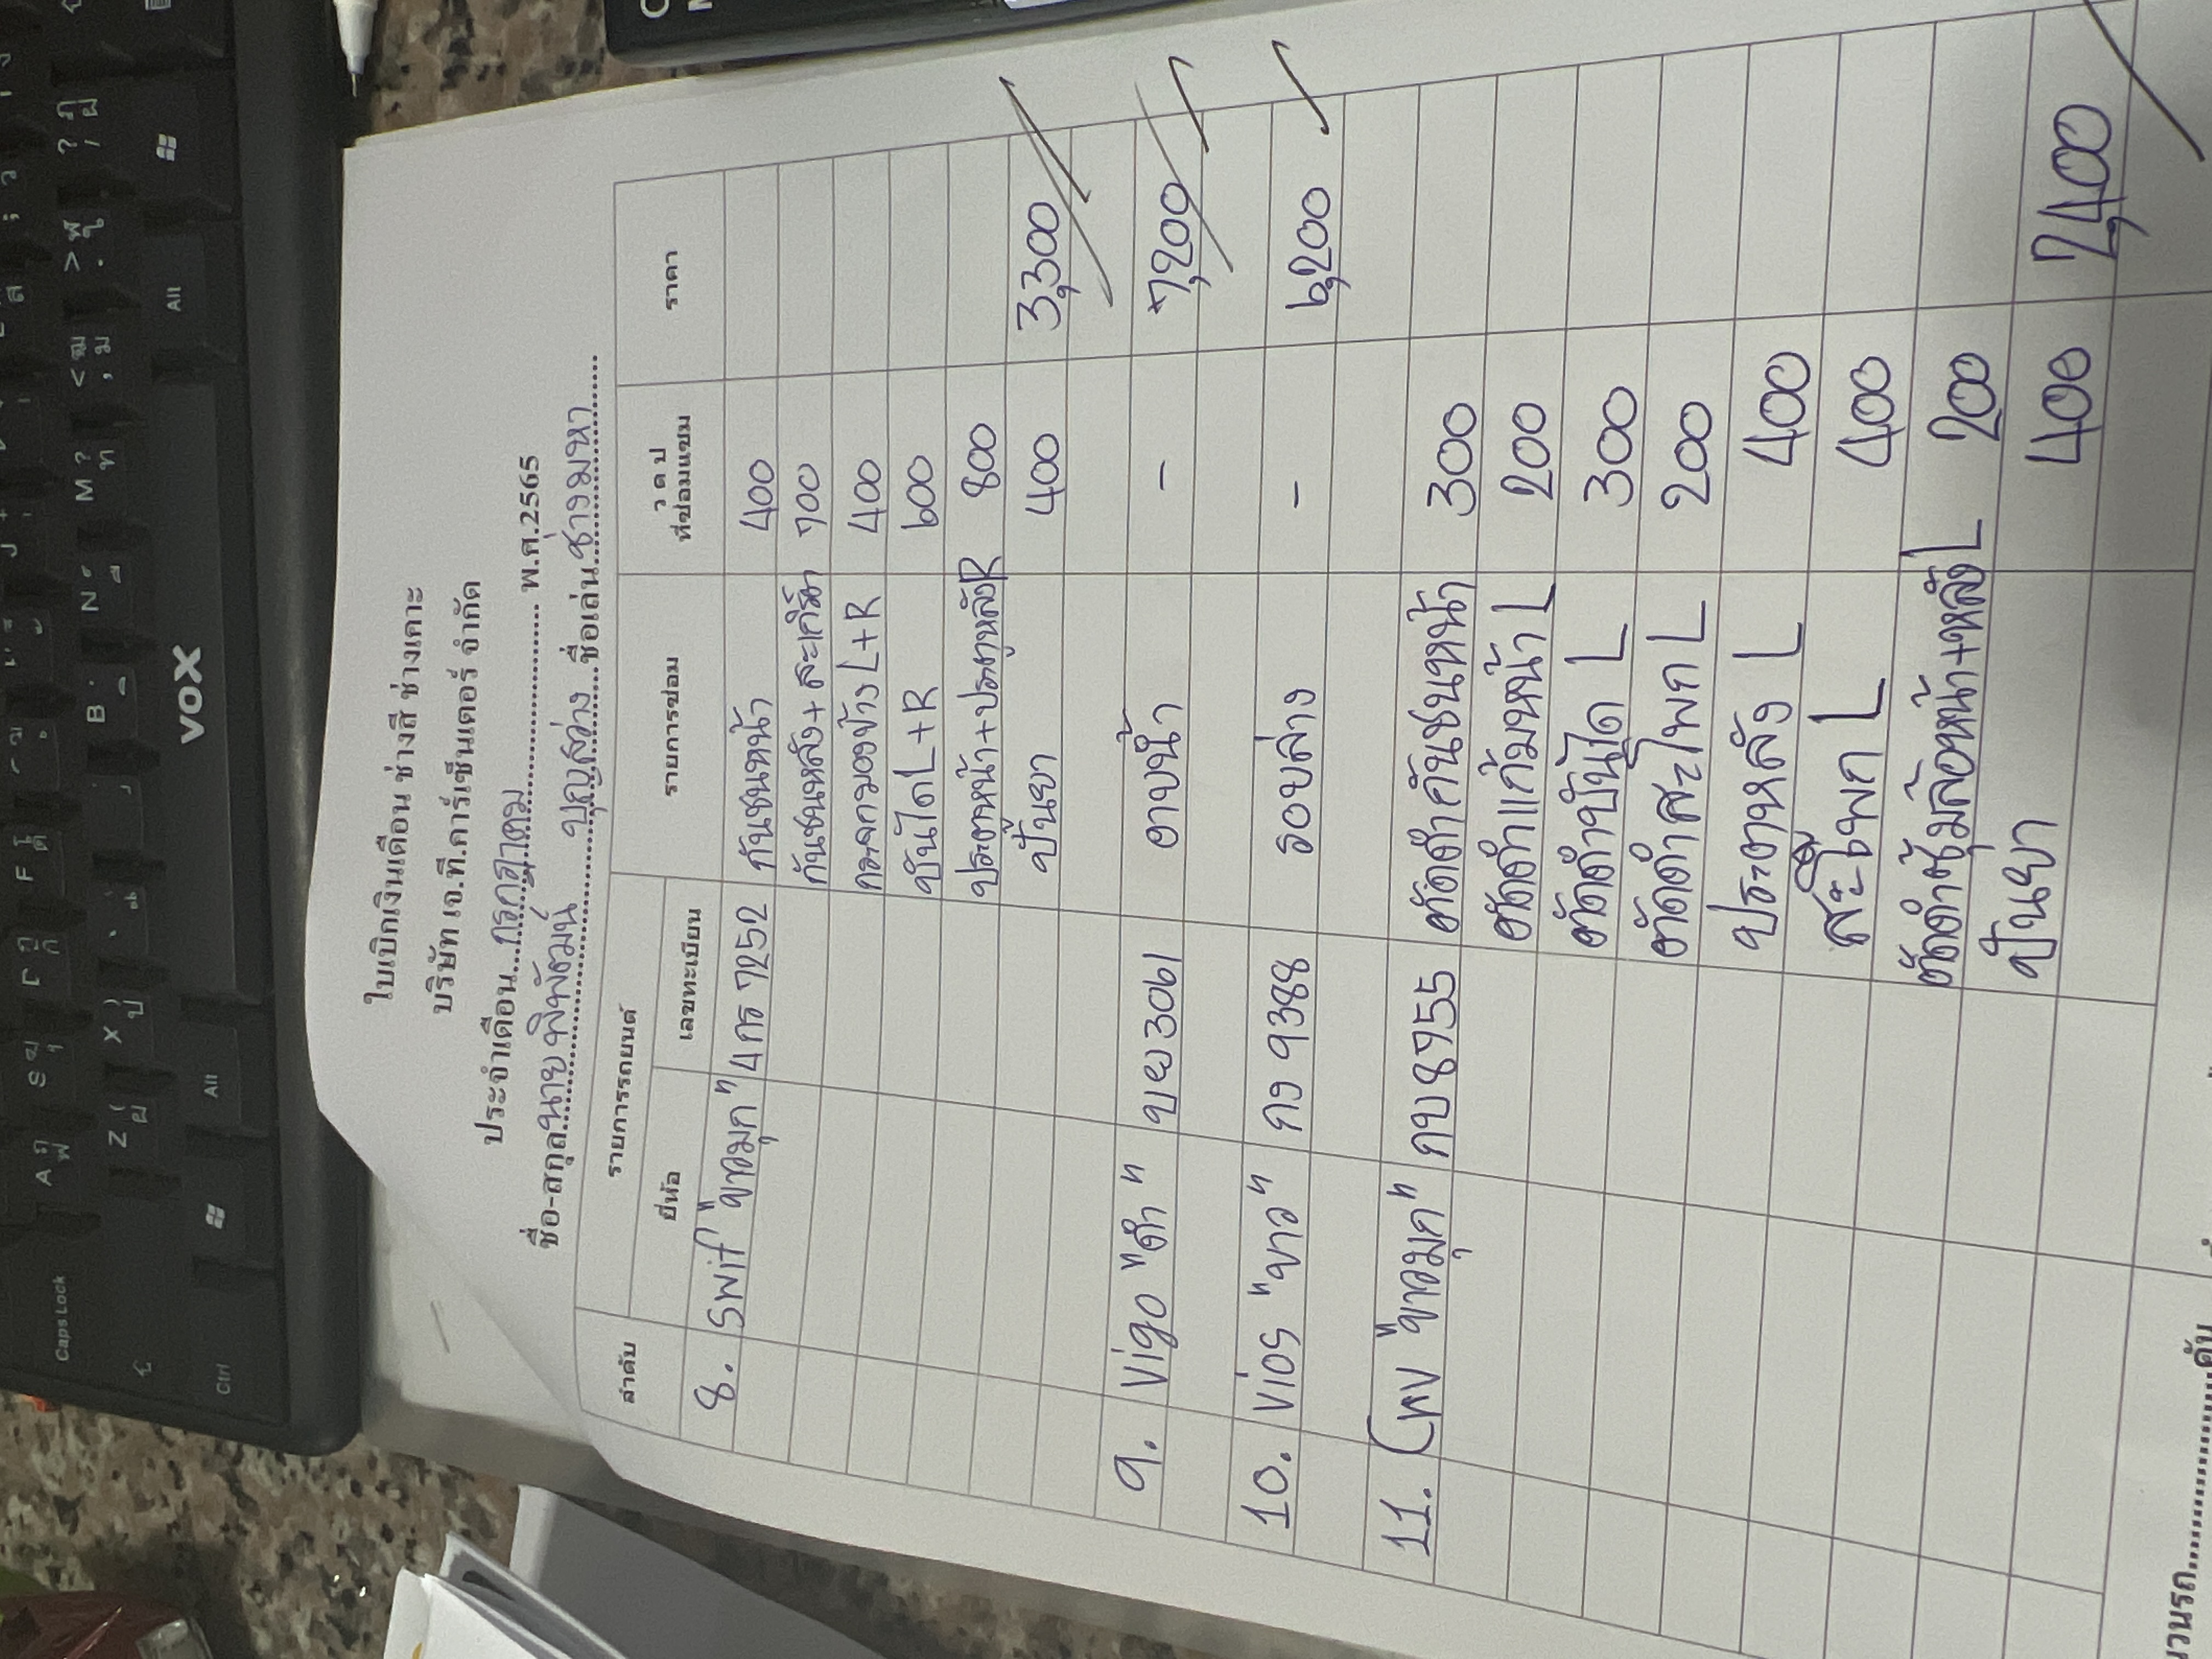 ใบเบิกเงินเดือน ช่างสี ช่างเคาะ
บริษัท เจ.ที.คาร์เซ็นเตอร์ จำกัด
ประจำเดือน...กรกฎาคม........................ พ.ศ.2565
ชื่อ-สกุล นาย พิพัฒน์ บุญสว่าง ชื่อเล่น ช่างมหา
ลำดับ รายการรถยนต์ รายการซ่อม ว ด ป ที่ซ่อมแซม ราคา
ยี่ห้อ เลขทะเบียน
8. Swif "ขาวมุก" 4กร 7252 กันชนหน้า 400
กันชนหลัง+สะเกิ๊ต 700
กระจกมองข้าง L+R 400
บันได L+R 600
ประตูหน้า+ประตูหลังR 800
ปั้นยา 400 3,300
9. Vigo "ดำ" ขย 3061 อาบน้ำ - 7,200
10. Vios "ขาว" กง 9388 รอบล่าง - 6,200
11. "ขาวมุก" กบ 8955 ตัดดำกันชนหน้า 300
ตัดดำแก้มหน้า L 200
ตัดดำบันได L 300
ตัดดำสะโพก L 200
ประตูหลัง L 400
สะโพก L 400
ตัดดำซุ้มล้อหน้า+หลัง L 200
ปั้นยา 400 2,400
VOX
Caps Lock
Ctrl
Alt
Alt
A
Z
X
F
B
N
M